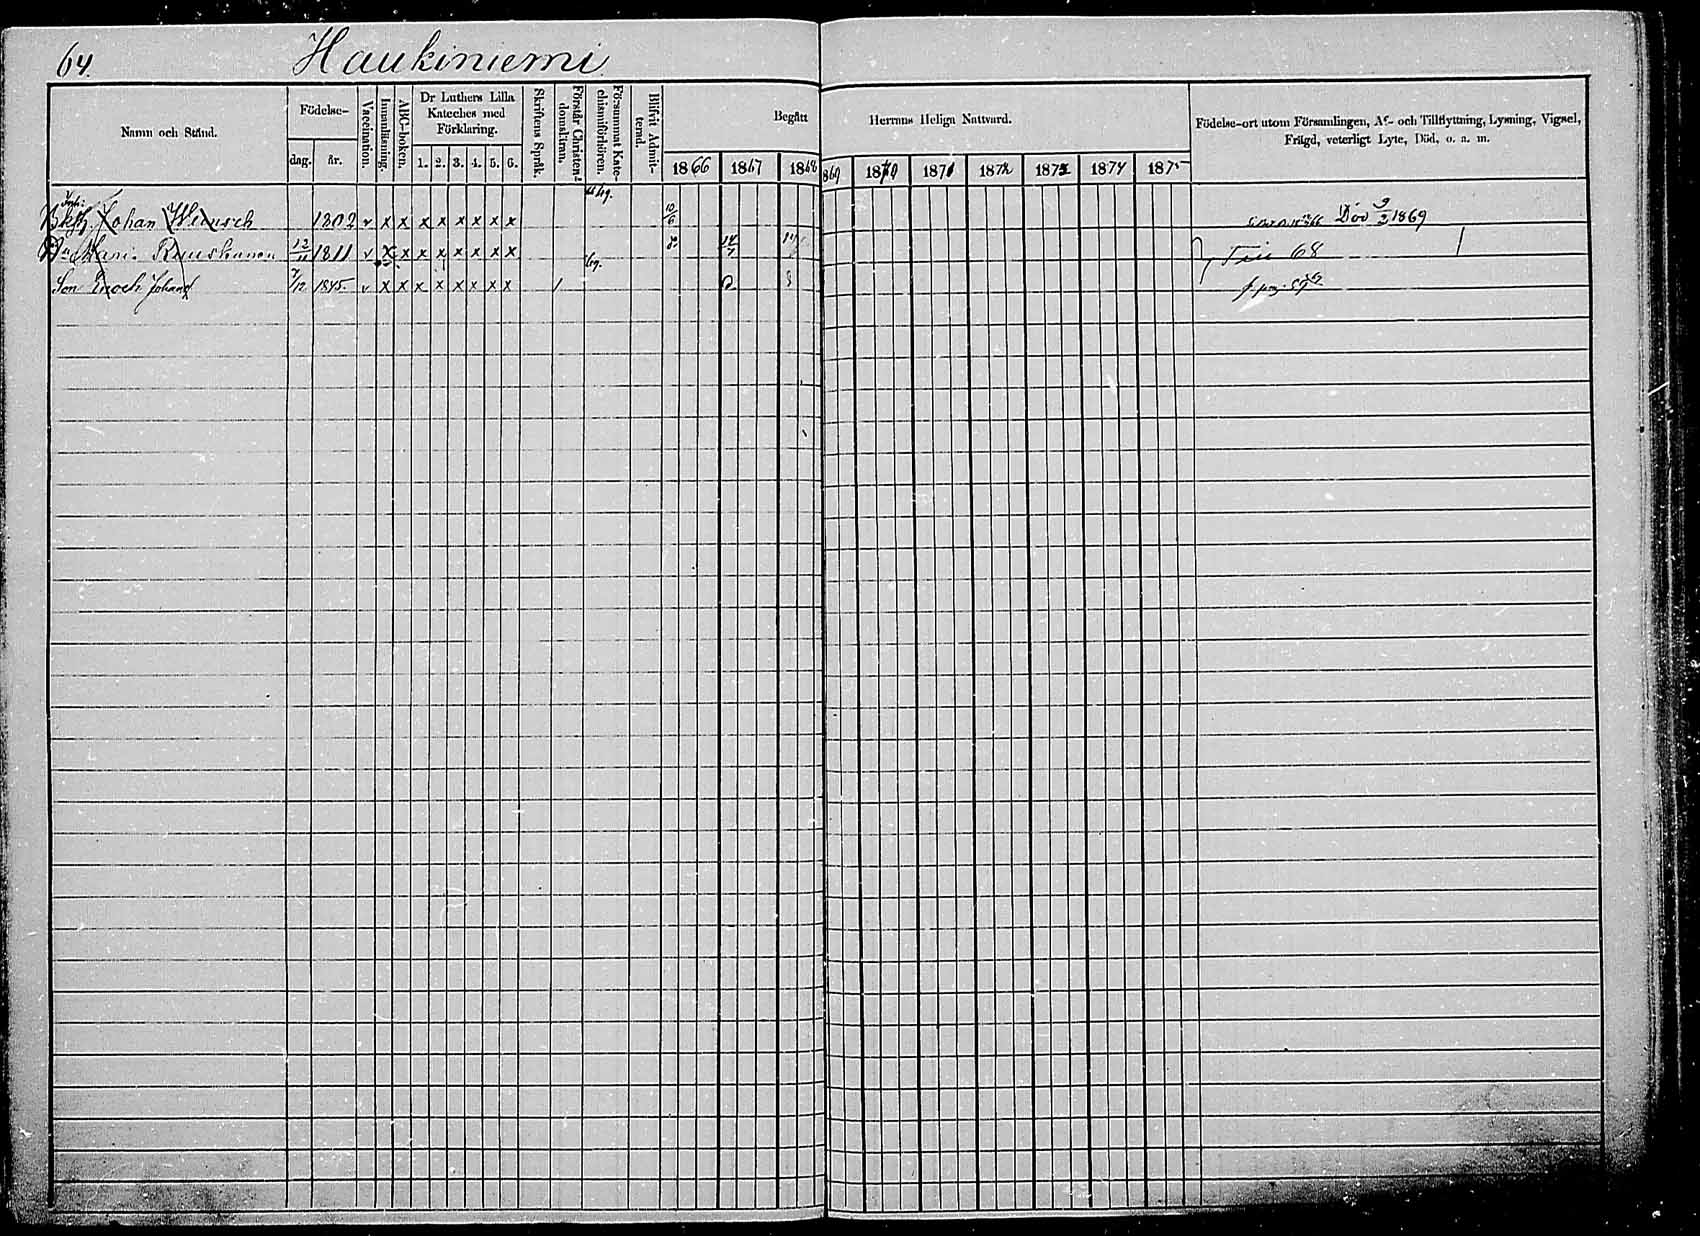 64. Haukiniemi
Namn och Stånd.
Födelse-
dag. år.
Vaccination.
Innanläsning.
ABC-boken.
Dr Luthers Lilla Kateches med Förklaring.
1. 2. 3. 4. 5. 6.
Skriftens Språk.
Förstår Christendomsläran.
Försummat Katechismiförhören.
Blifvit Admitterad.
Begått Herrans Heliga Nattvard.
1866 1867 1868 1869 1870 1871 1872 1873 1874 1875
Födelse-ort utom Församlingen, Af- och Tillflyttning, Lysning, Vigsel,
Frägd, veterligt Lyte, Död, o. a. m.
Johan 1802 v x x x x x x x x 10/6 Död 1869
12/11 1811 v x x x x x x x x 68
Son Enoch Johan 7/12 1845 v x x x x x x x x